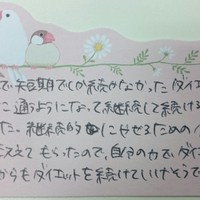 で短期でしか続かなかったダイエ
に通うようになって継続して続ける
た。継続的にやせるための
教えてもらったので、自分の力でダイ
からもダイエットを続けていけそうで